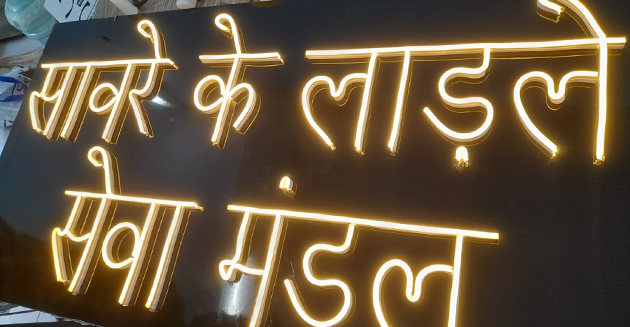 सावरे के लाड़ले
सेवा मंडल